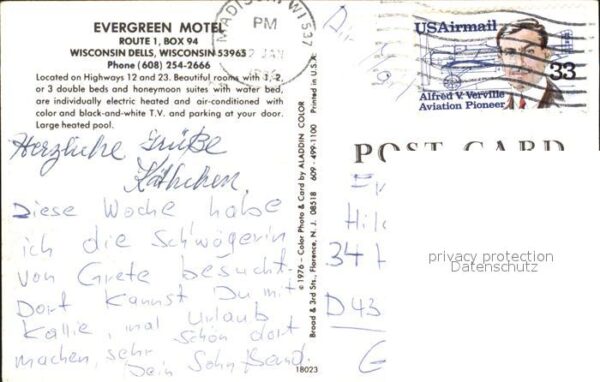 EVERGREEN MOTEL
ROUTE 1, BOX 94
WISCONSIN DELLS, WISCONSIN 53965
Phone (608) 254-2666
Located on Highways 12 and 23. Beautiful rooms with 1, 2,
or 3 double beds and honeymoon suites with water bed,
are individually electric heated and air-conditioned with
color and black-and-white T.V. and parking at your door.
Large heated pool.
MADISON, WI 537
PM
USAirmail
33
Alfred V. Verville
Aviation Pioneer
POST CARD
Herzliche Grüße
Käthchen.
Diese Woche habe
ich die Schwägerin
von Grete besucht.
Dort kannst Du mit
Kallie, mal Urlaub
machen, sehr schön dort
Dein Sohn
© 1976 - Color Photo & Card by ALADDIN COLOR
Broad & 3rd Sts., Florence, N. J. 08518 609-499-1100 Printed in U.S.A.
18023
Hil
34
D 43
privacy protection
Datenschutz